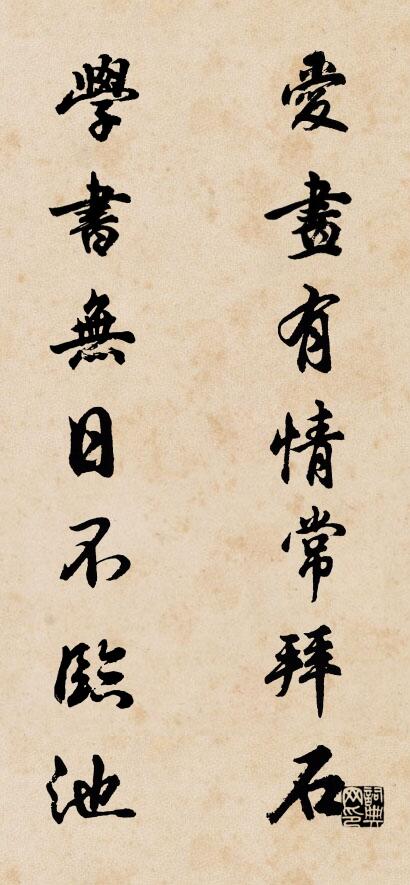 愛畫有情常拜石
學書無日不臨池
詞典网印